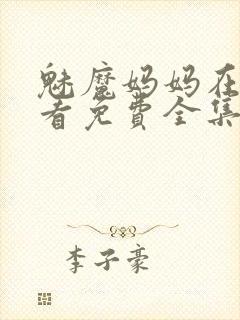 魅魔妈妈在
看免费全集
李子豪